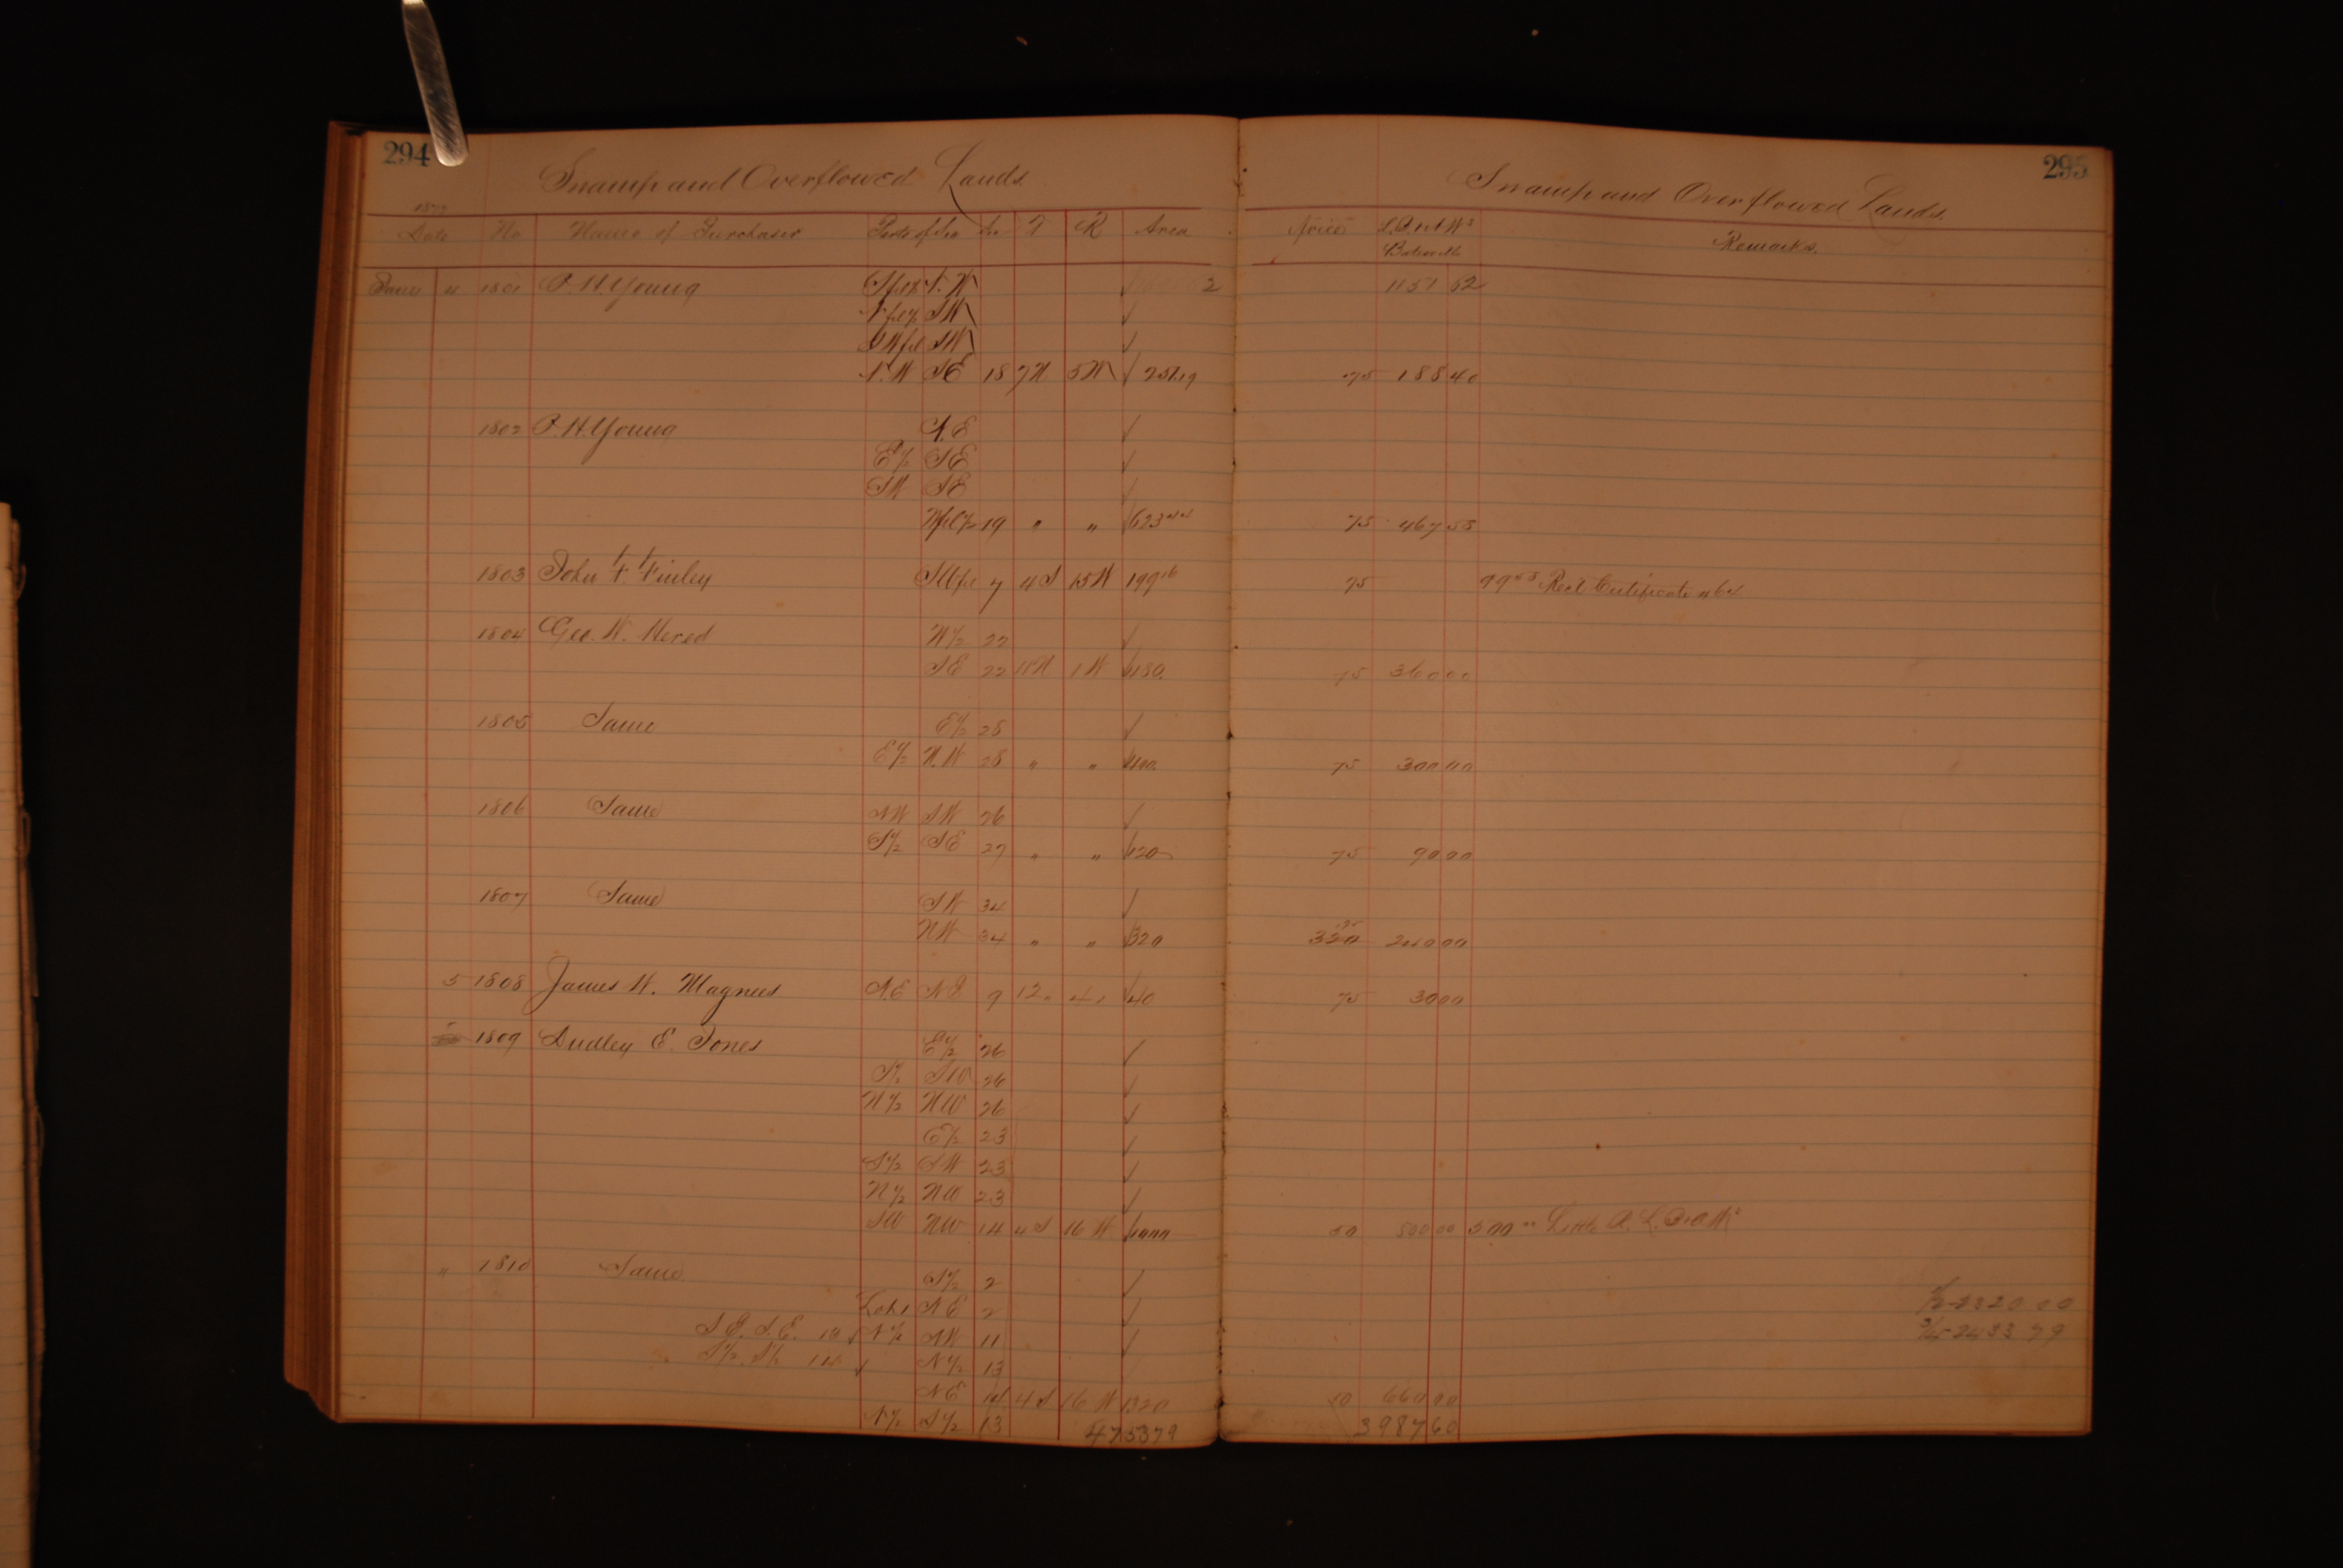 294
Swamp and Overflowed Lands.
1872
Date No Name of Purchaser Parts of Sec Sec T R Area
4 1801 P. H. Young S frl ½ N.W ✓ 2
N frl ½ SW ✓
SW frl SW ✓
N.W SE 18 7N 5W ✓ 251.19
1802 P. H. Young N.E ✓
E½ SE ✓
SW SE ✓
W frl ½ 19 " " ✓ 623 44
1803 John F. Finley SW frl 7 4S 15W 199 16
1804 Geo. W. Hered W½ 22 ✓
SE 22 11N 1W ✓ 480.
1805 Same E½ 28 ✓
E½ N.W 28 " " ✓ 400.
1806 Same NW SW 26 ✓
S½ SE 27 " " ✓ 120
1807 Same SW 34 ✓
NW 34 " " ✓ 320
5 1808 James W. Magness N.E NE 9 12 " 4 " ✓ 40
1809 Dudley E. Jones E½ 26 ✓
S½ SW 26 ✓
N½ NW 26 ✓
E½ 23 ✓
S½ SW 23 ✓
N½ NW 23 ✓
SW NW 14 4S 16W ✓ 1000
" 1810 Same S½ 2 ✓
Lot 1 NE 2 ✓
S.E. S.E. 10 ✓ N½ NW 11 ✓
S½ S½ 11 ✓ N½ 13
NE 14 4S 16W 1320
N½ S½ 13 4753 79
295
Swamp and Overflowed Lands.
Price Remarks.
Batesville
1151 62
.75 188 40
75 467 58
75 Rect Certificate
75 360 00
75 300 00
75 90 00
75
320 240 00
75 30 00
50 500 00 500 00 Little R.
½ 2320 00
¾ 2433 79
50 660 00
3987 60